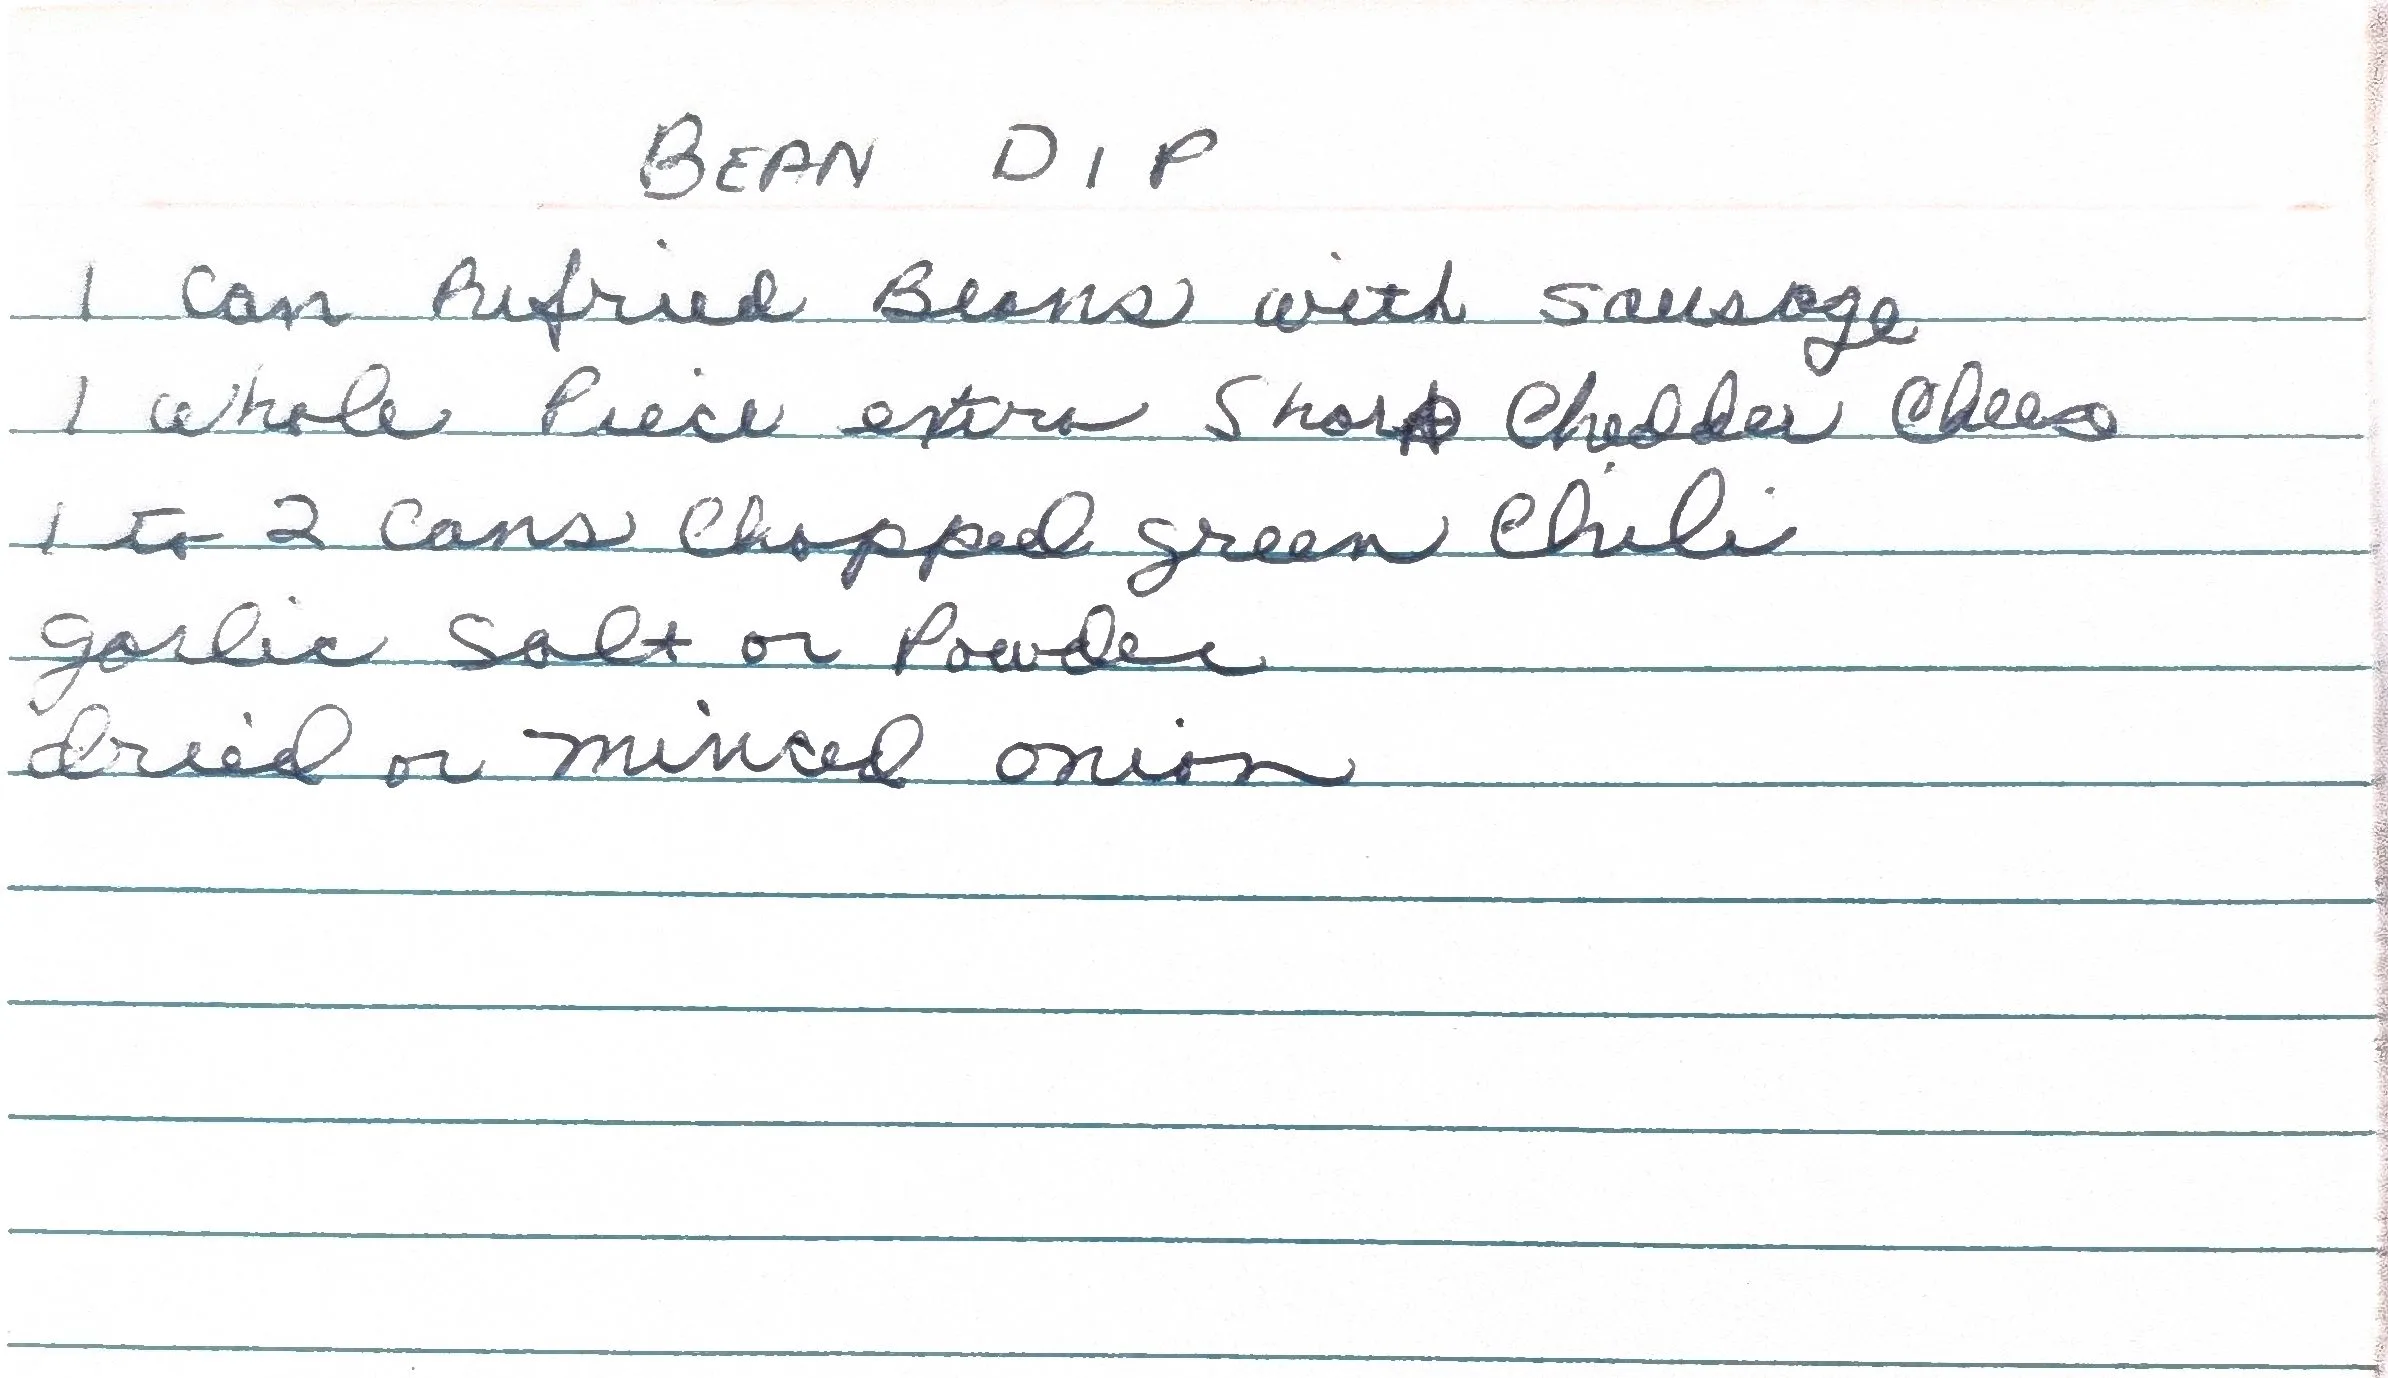 BEAN DIP
1 Can Refried Beans with Sausage
1 whole Piece extra Sharp Chedder Chees
1 to 2 Cans Chopped green Chili
garlic Salt or Powder
dried or minced onion